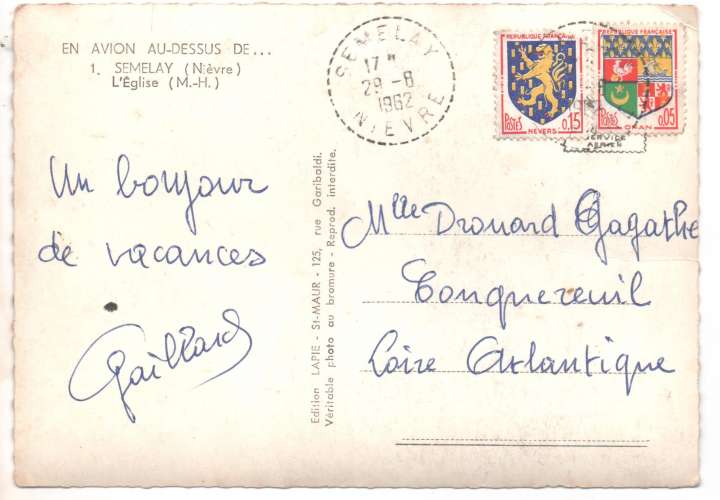 EN AVION AU-DESSUS DE...
1. SEMELAY (Nièvre)
L'Église (M.-H.)
SEMELAY
17 H
29-8
1962
NIEVRE
REPUBLIQUE FRANÇAISE
POSTES
0,15
NEVERS
REPUBLIQUE FRANÇAISE
POSTES
0,05
ORAN
SERVICE
AERIEN
Un bonjour
de vacances
Gaillard
Edition LAPIE - St-MAUR - 125, rue Garibaldi.
Véritable photo au bromure - Reprod. interdite.
Mlle Drouard Gagathe
Conquereuil
Loire Atlantique